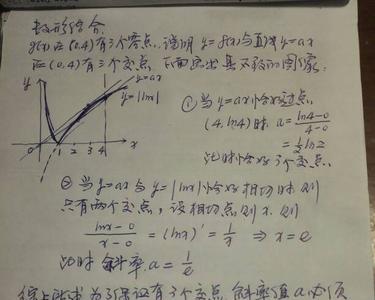 数形结合
g(x)在(0,4)有三个零点,说明y=f(x)与直线y=ax
在(0,4)有三个交点,下面画出其大致的图像:
y
y=ax
y=|lnx|
0 1 2 3 4 x
① 当y=ax恰好过点
(4,ln4)时 a=\frac{ln4-0}{4-0}
=\frac{1}{2}ln2
此时恰好3个交点.
② 当y=ax与y=|lnx|恰好相切时则
只有两个交点,设相切点则x.则
\frac{lnx-0}{x-0}=(lnx)'=\frac{1}{x} ⇒ x=e
此时 斜率a=\frac{1}{e}
综上所述为了保证有三个交点 斜率值a必须